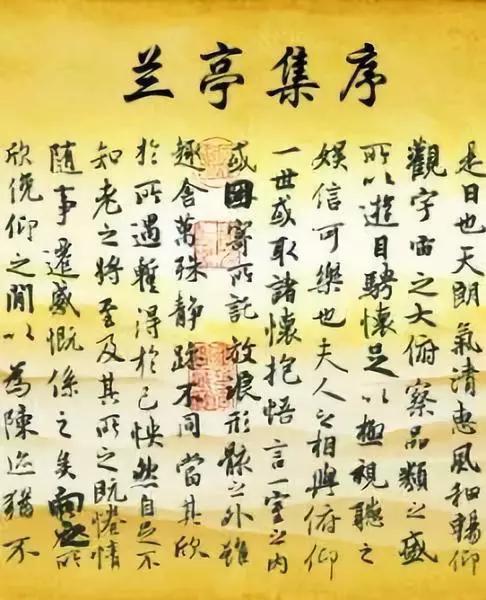 兰亭集序
是日也天朗氣清惠風和暢仰
觀宇宙之大俯察品類之盛
所以遊目騁懷足以極視聽之
娛信可樂也夫人之相與俯仰
一世或取諸懷抱悟言一室之內
或因寄所託放浪形骸之外雖
趣舍萬殊靜躁不同當其欣
於所遇暫得於己怏然自足不
知老之將至及其所之既惓情
隨事遷感慨係之矣向之所
欣俛仰之閒以為陳迹猶不